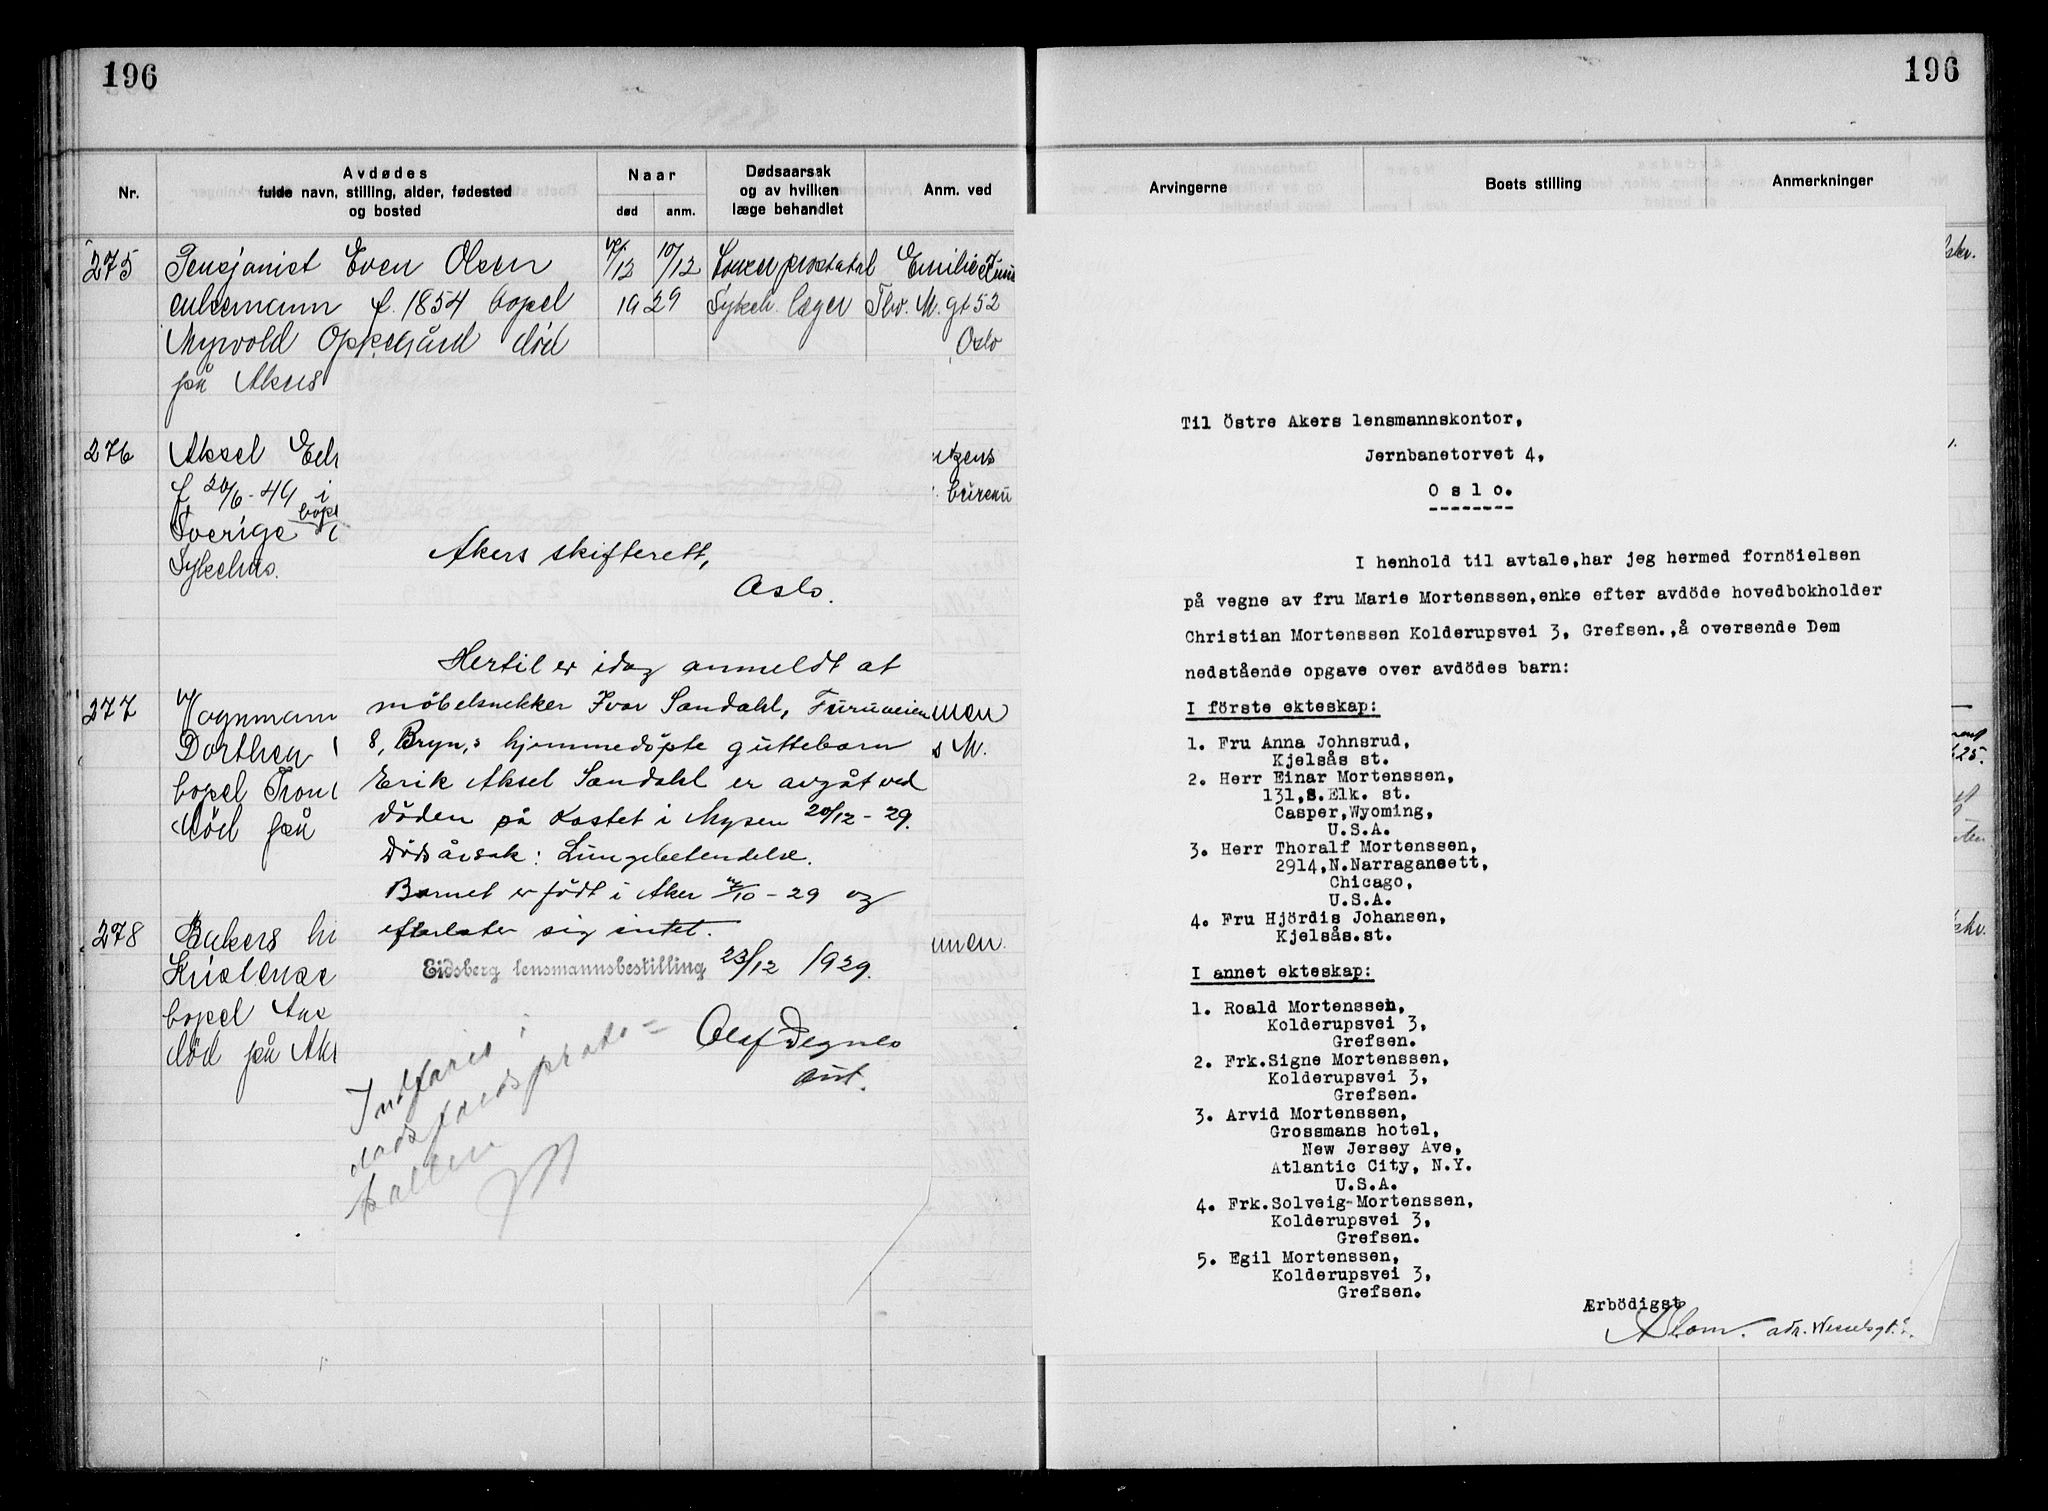 196
Nr.
Avdødes
fulde navn, stilling, alder, fødested
og bosted
Naar
død
anm.
Dødsaarsak
og av hvilken
læge behandlet
Anm. ved
275
Pensjonist Even Olsen
enkemann f. 1854 bopel
Myrvold Oppegård død
på Akers
10/12
1929
Sykeh. læger
Emilie
Thv. M. gt 52
Oslo
276
Aksel
f 20/6-49 i
bopel
Sverige
Sykehus.
bureau
277
Vognmann
Dorthea
bopel
død på
s M.
278
Bakers
bopel
død på
Akers skifterett,
Oslo.
Hertil er idag anmeldt at
möbelsnekker Ivar Sandahl, Furuveien
8, Bryn,s hjemmedöpte guttebarn
Erik Aksel Sandahl er avgåt ved
döden på Kastet i Mysen 20/12-29.
Dödsårsak: Lungebetendelse.
Barnet er födt i Aker /10-29 og
efterlater sig intet.
Eidsberg lensmannsbestilling 23/12 1929.
Olaf Degnes
aut.
Indføres i
dødsfaldsproto=
kollen
196
Arvingerne
Boets stilling
Anmerkninger
Til Östre Akers lensmannskontor,
Jernbanetorvet 4,
Oslo.
--------
I henhold til avtale,har jeg hermed fornöielsen
på vegne av fru Marie Mortenssen,enke efter avdöde hovedbokholder
Christian Mortenssen Kolderupsvei 3, Grefsen.,å oversende Dem
nedstående opgave over avdödes barn:
I förste ekteskap:
1. Fru Anna Johnsrud,
Kjelsås st.
2. Herr Einar Mortenssen,
131,S.Elk. st.
Casper,Wyoming,
U.S.A.
3. Herr Thoralf Mortenssen,
2914,N.Narragansett,
Chicago,
U.S.A.
4. Fru Hjördis Johansen,
Kjelsås.st.
I annet ekteskap:
1. Roald Mortenssen,
Kolderupsvei 3,
Grefsen.
2. Frk.Signe Mortenssen,
Kolderupsvei 3,
Grefsen.
3. Arvid Mortenssen,
Grossmans hotel,
New Jersey Ave,
Atlantic City, N.Y.
U.S.A.
4. Frk.Solveig-Mortenssen,
Kolderupsvei 3,
Grefsen.
5. Egil Mortenssen,
Kolderupsvei 3,
Grefsen.
Ærbödigst
adr.